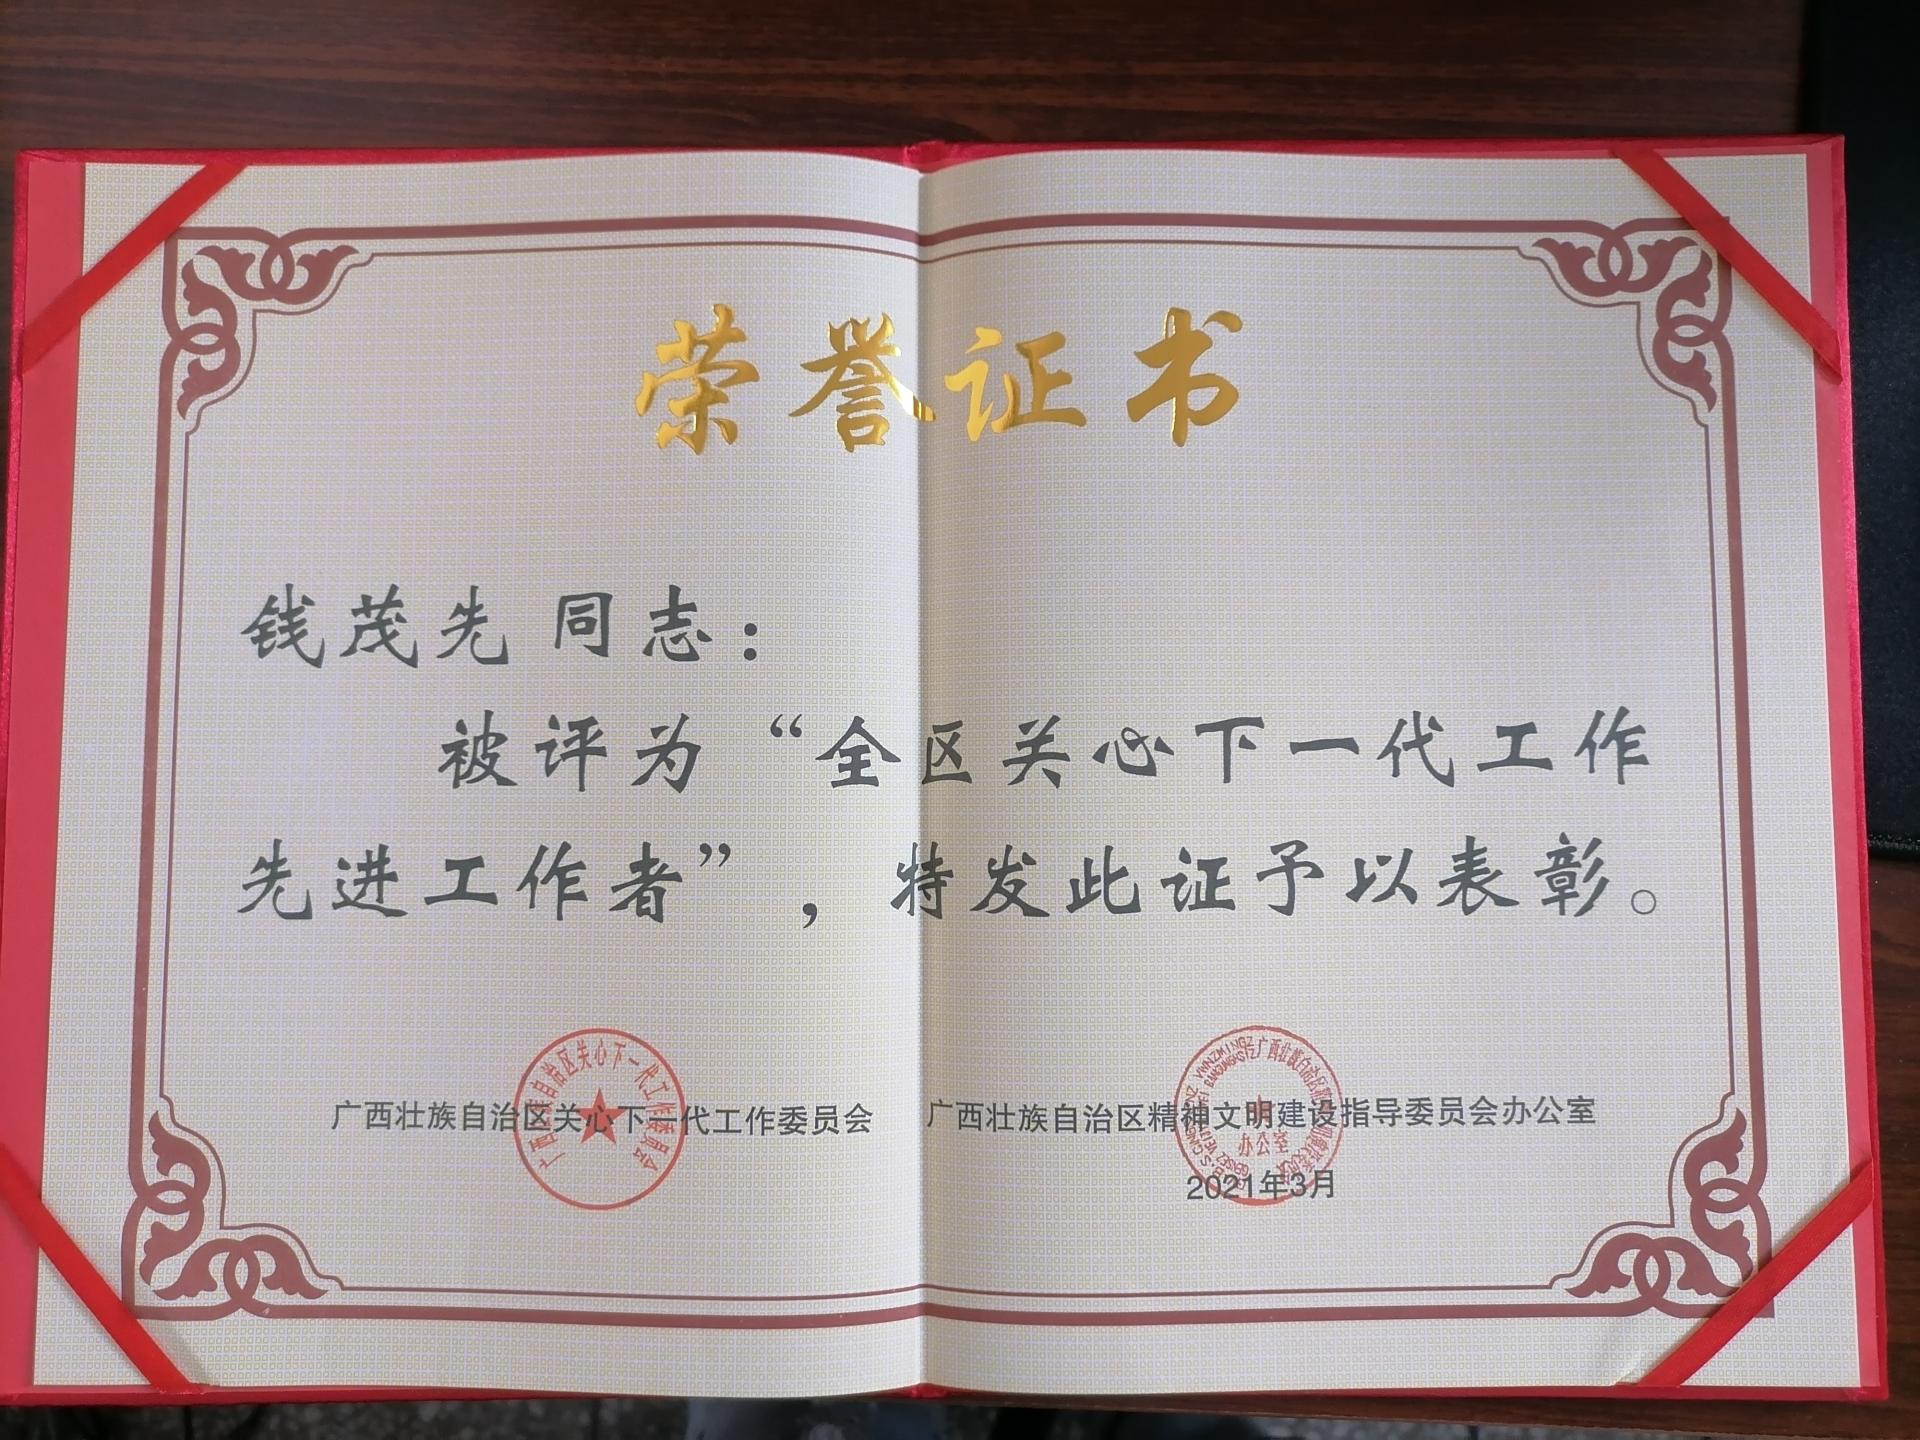 荣誉证书
钱茂先 同志：
被评为“全区关心下一代工作
先进工作者”，特发此证予以表彰。
广西壮族自治区关心下一代工作委员会
广西壮族自治区精神文明建设指导委员会办公室
2021年3月
广西壮族自治区关心下一代工作委员会
办公室